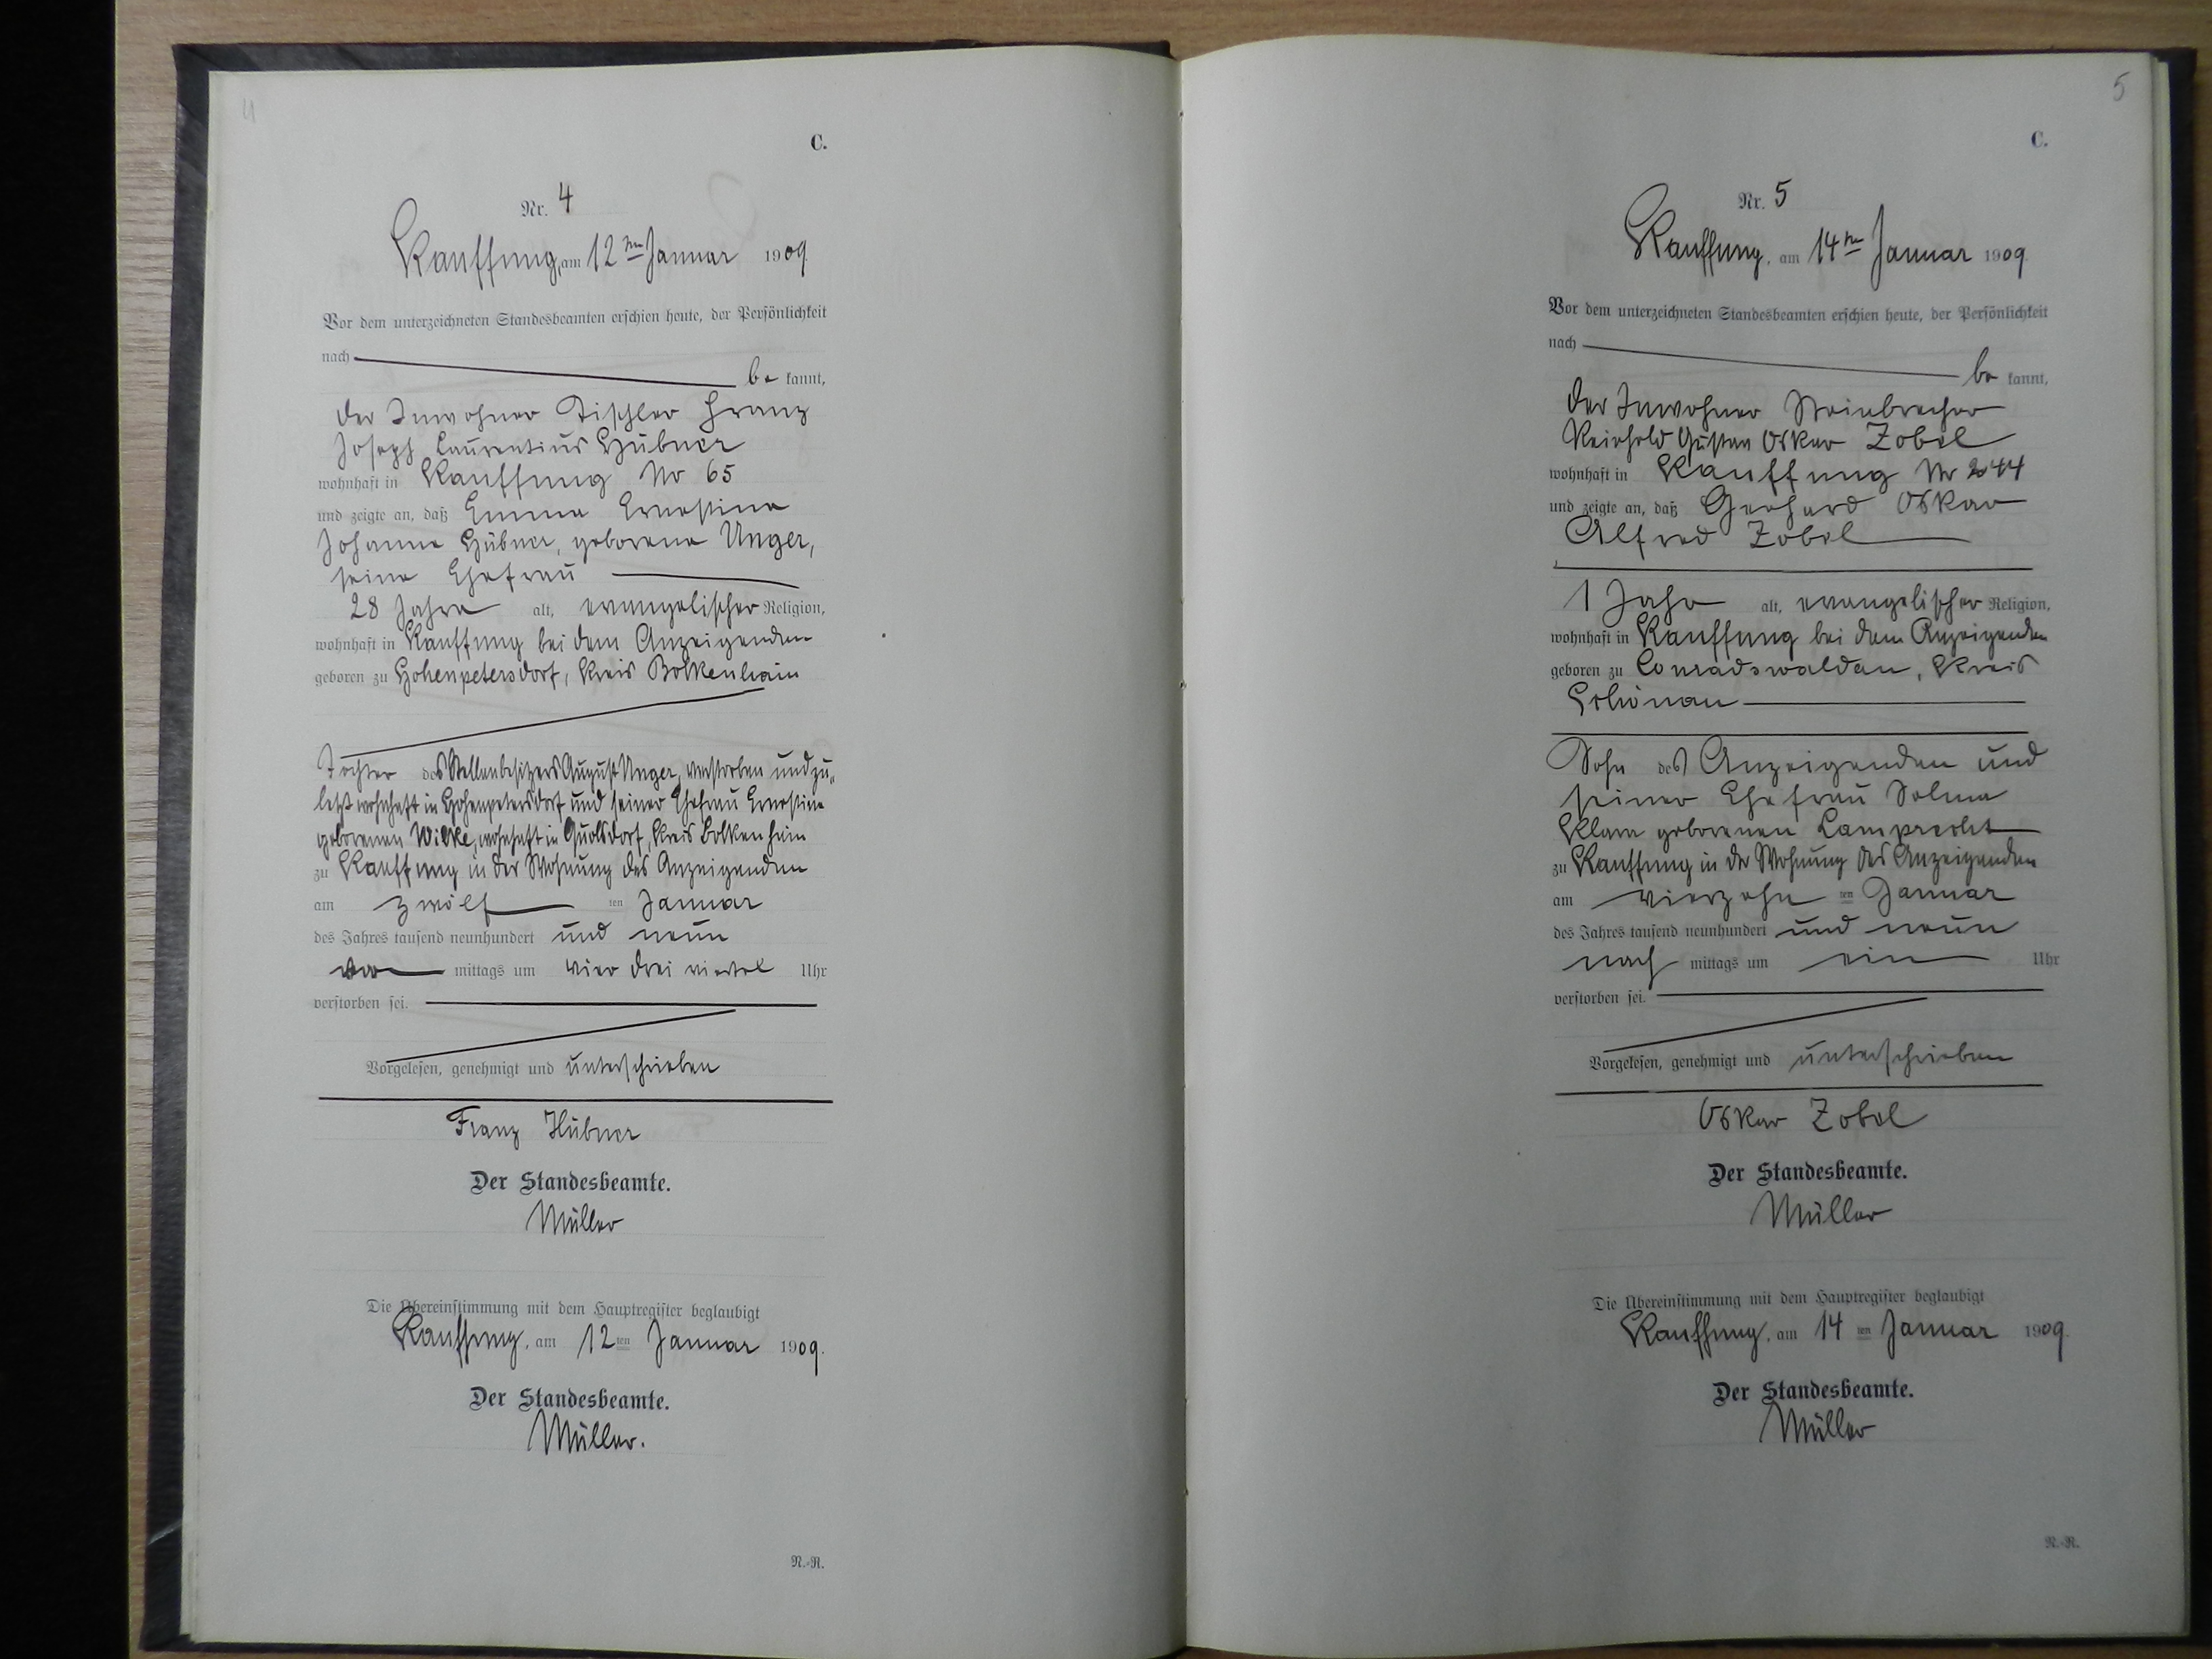 4
C.
Nr. 4
Kauffung, am 12ten Januar 1909
Vor dem unterzeichneten Standesbeamten erschien heute, der Persönlichkeit
nach
be kannt,
der Inwohner Tischler Franz
Joseph Laurentius Hübner
wohnhaft in Kauffung No 65
und zeigte an, daß Emma Ernestine
Johanne Hübner, geborene Unger,
seine Ehefrau
28 Jahre alt, evangelischer Religion,
wohnhaft in Kauffung bei dem Anzeigenden
geboren zu Hohenpetersdorf, Kreis Bolkenhain
Tochter des Stellenbesitzers August Unger, verstorben und zu-
letzt wohnhaft in Hohenpetersdorf und seiner Ehefrau Ernestine
geborenen Wilke, wohnhaft in Quolsdorf, Kreis Bolkenhain
zu Kauffung in der Wohnung des Anzeigenden
am zwölf ten Januar
des Jahres tausend neunhundert und neun
vor mittags um vier drei viertel Uhr
verstorben sei.
Vorgelesen, genehmigt und unterschrieben
Franz Hübner
Der Standesbeamte.
Müller
Die Übereinstimmung mit dem Hauptregister beglaubigt
Kauffung, am 12 ten Januar 1909.
Der Standesbeamte.
Müller.
N.-R.
5
C.
Nr. 5
Kauffung, am 14ten Januar 1909
Vor dem unterzeichneten Standesbeamten erschien heute, der Persönlichkeit
nach
be kannt,
der Inwohner Steinbrecher
Reinhold Gustav Oskar Zobel
wohnhaft in Kauffung No 244
und zeigte an, daß Gerhard Oskar
Alfred Zobel
1 Jahr alt, evangelischer Religion,
wohnhaft in Kauffung bei dem Anzeigenden
geboren zu Conradswaldau, Kreis
Schönau
Sohn des Anzeigenden und
seiner Ehefrau Selma
Klara geborenen Lamprecht
zu Kauffung in der Wohnung des Anzeigenden
am vierzehn ten Januar
des Jahres tausend neunhundert und neun
nach mittags um ein Uhr
verstorben sei.
Vorgelesen, genehmigt und unterschrieben
Oskar Zobel
Der Standesbeamte.
Müller
Die Übereinstimmung mit dem Hauptregister beglaubigt
Kauffung, am 14 ten Januar 1909.
Der Standesbeamte.
Müller
N.-R.